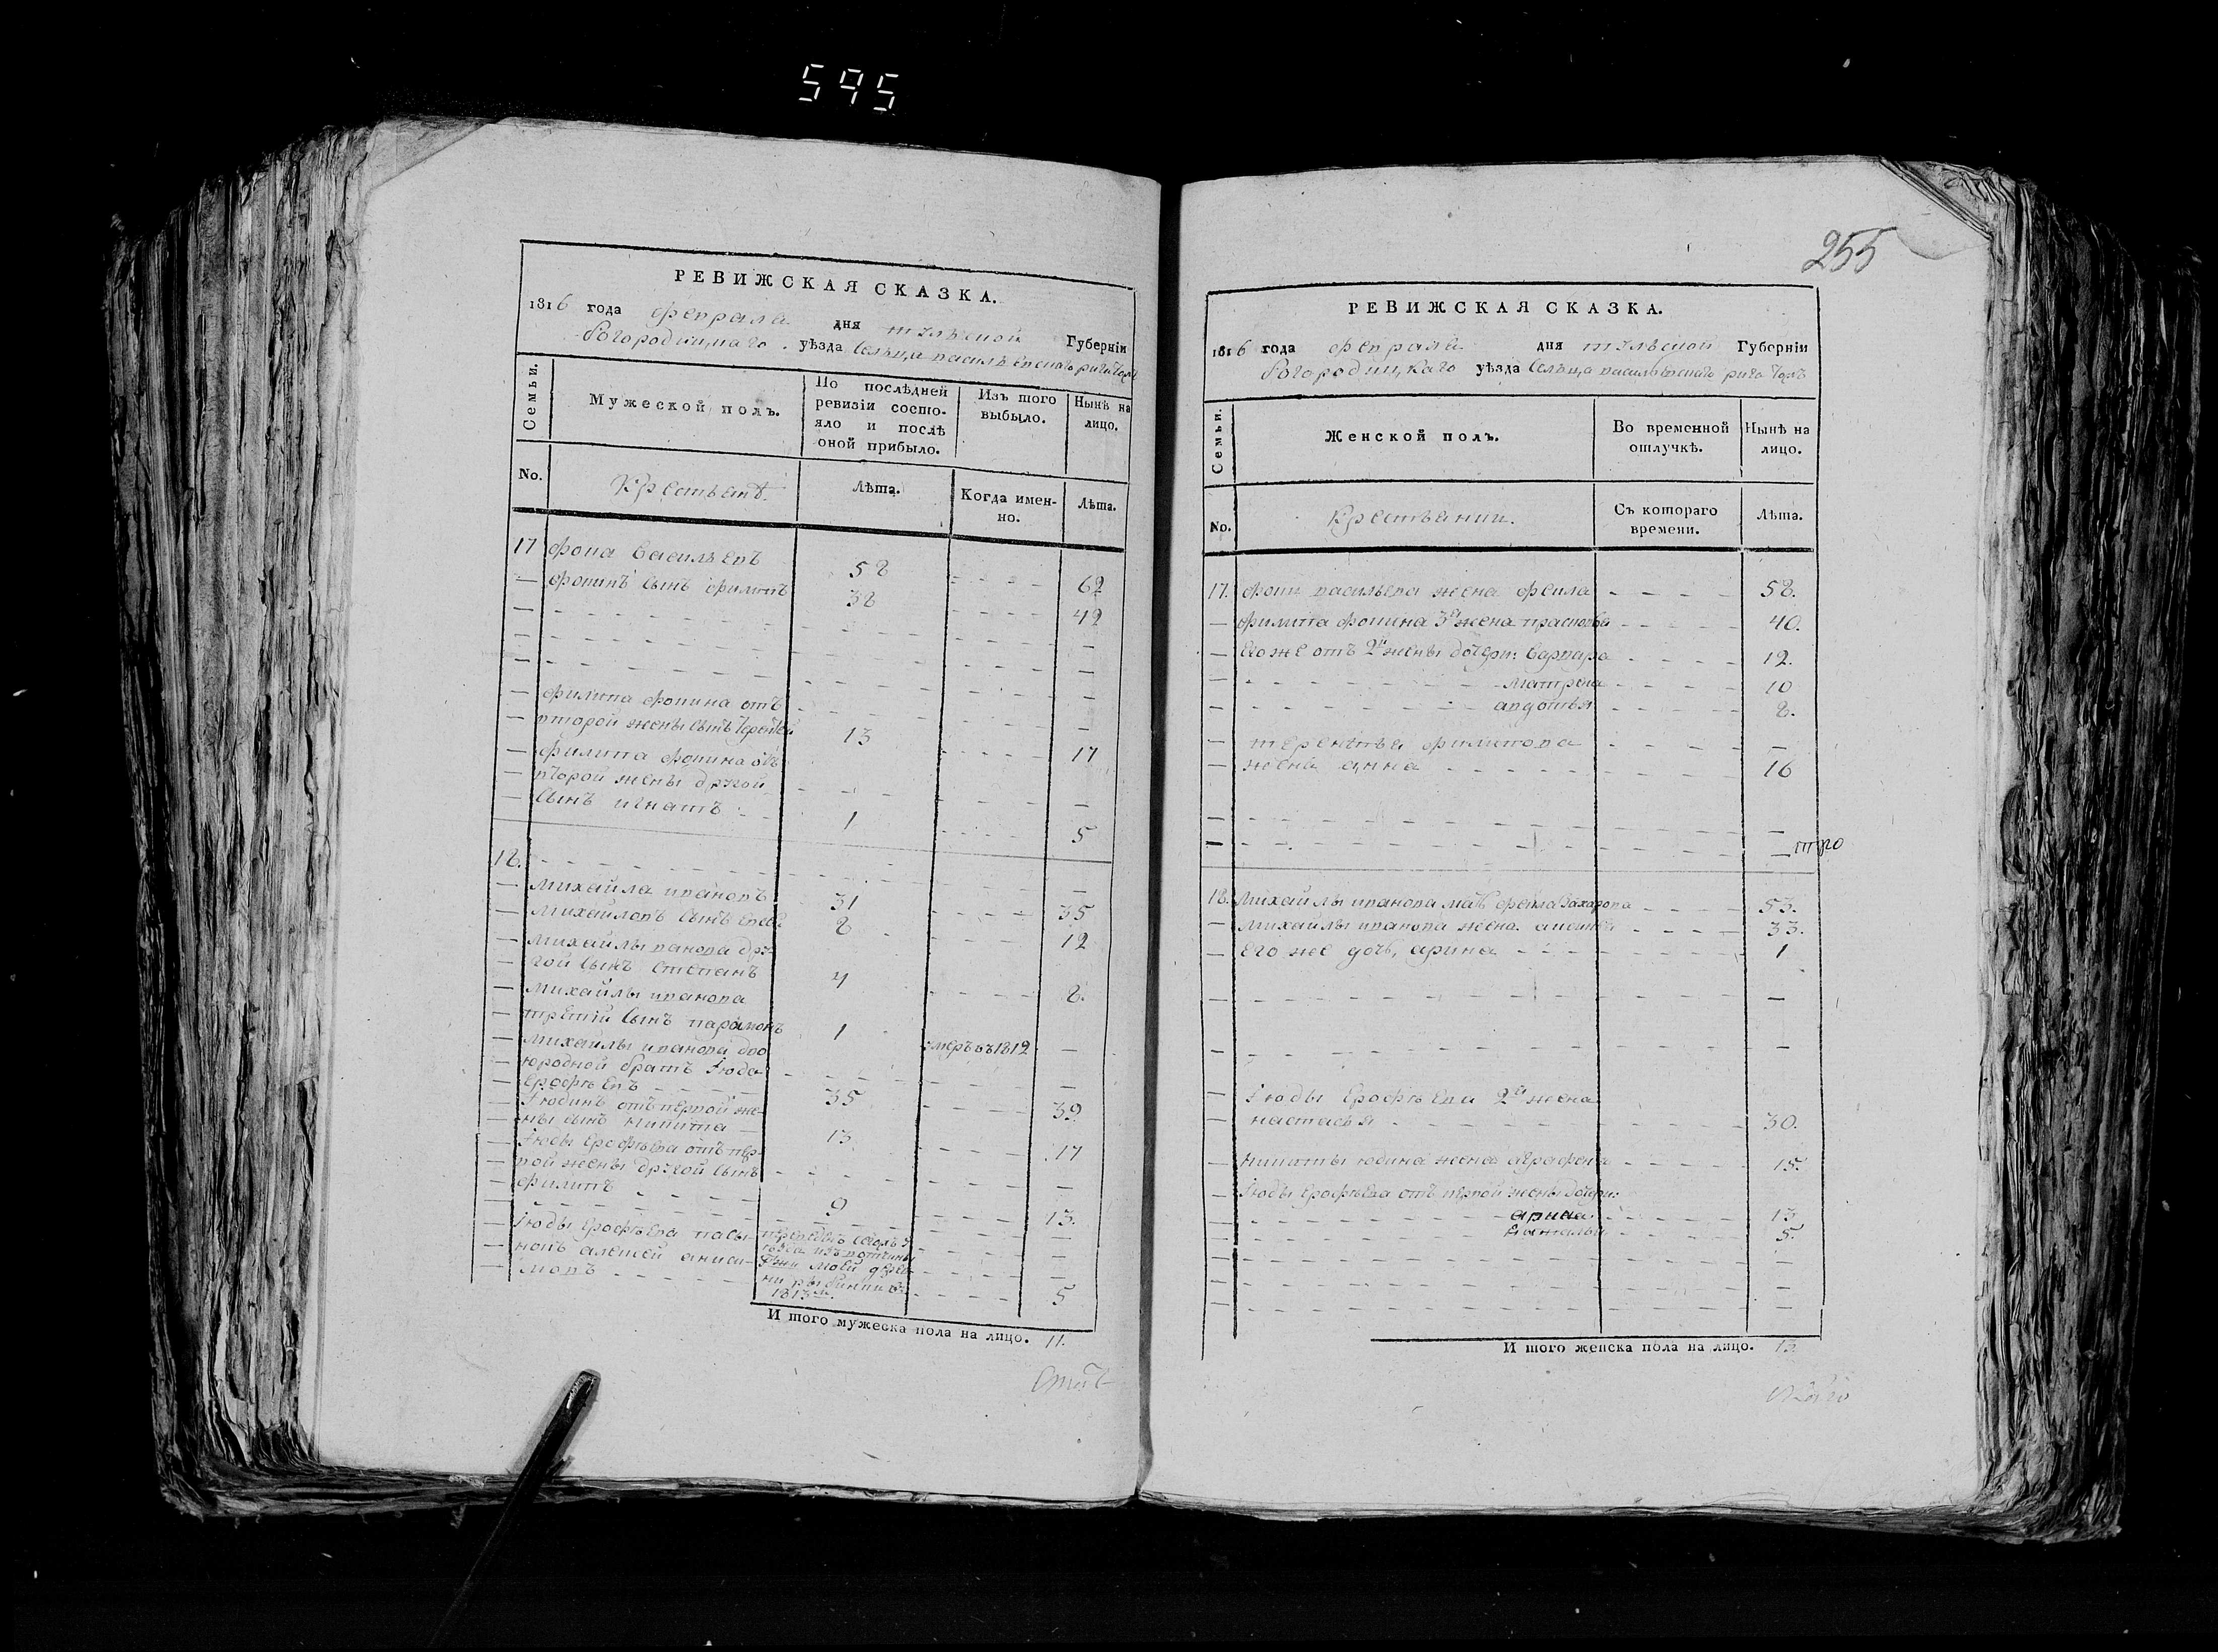 595
255
РЕВИЖСКАЯ СКАЗКА.
1816 года февраля дня тульской Губерніи
богородицкаго уѣзда Сельца васильевскаго
Семьи. Мужеской полъ. По послѣдней ревизіи состояло и послѣ оной прибыло. Изъ того выбыло. Нынѣ на лицо.
No. Лѣта. Когда именно. Лѣта.
17 фона васильевъ 58 62
фонинъ сынъ филипъ 38 42
филипа фонина отъ
второй жены сынъ 13 17
филипа фонина отъ
второй жены другой
сынъ игнатъ 1 5
18.
Михайла ивановъ 31 35
Михайловъ сынъ 8 12
Михайлы иванова дру-
гой сынъ степанъ 4 8.
Михайлы иванова
третій сынъ парамонъ 1 умеръ въ 1812
Михайлы иванова дво
юродной братъ Июда
ерофѣевъ 35 39
Июдинъ отъ первой же-
ны сынъ никита 13 17
Июды ерофѣева отъ пер-
вой жены другой сынъ
филипъ 9 13.
Июды ерофѣева пасы-
нокъ алексей аниси-
мовъ 1813 5
И того мужеска пола на лицо. 11.
РЕВИЖСКАЯ СКАЗКА.
1816 года февраля дня тульской Губерніи
богородицкаго уѣзда Сельца васильевскаго
Семьи. Женской полъ. Во временной отлучкѣ. Нынѣ на лицо.
No. Съ котораго времени. Лѣта.
17. фоны васильева жена фекла 58.
филипа фонина 3я жена прасковья 40.
его же отъ 2й жены дочери: варвара 12.
матрена 10
авдотья 8.
терентья филипова
жена анна 16
18. Михайлы иванова мать фекла захарова 53.
Михайлы иванова жена 33.
его же дочь, арина 1
Июды ерофѣева 2я жена
настасья 30.
никиты юдина жена аграфена 15.
Июды ерофѣева отъ первой жены дочери:
арина 13
5.
И того женска пола на лицо. 13.